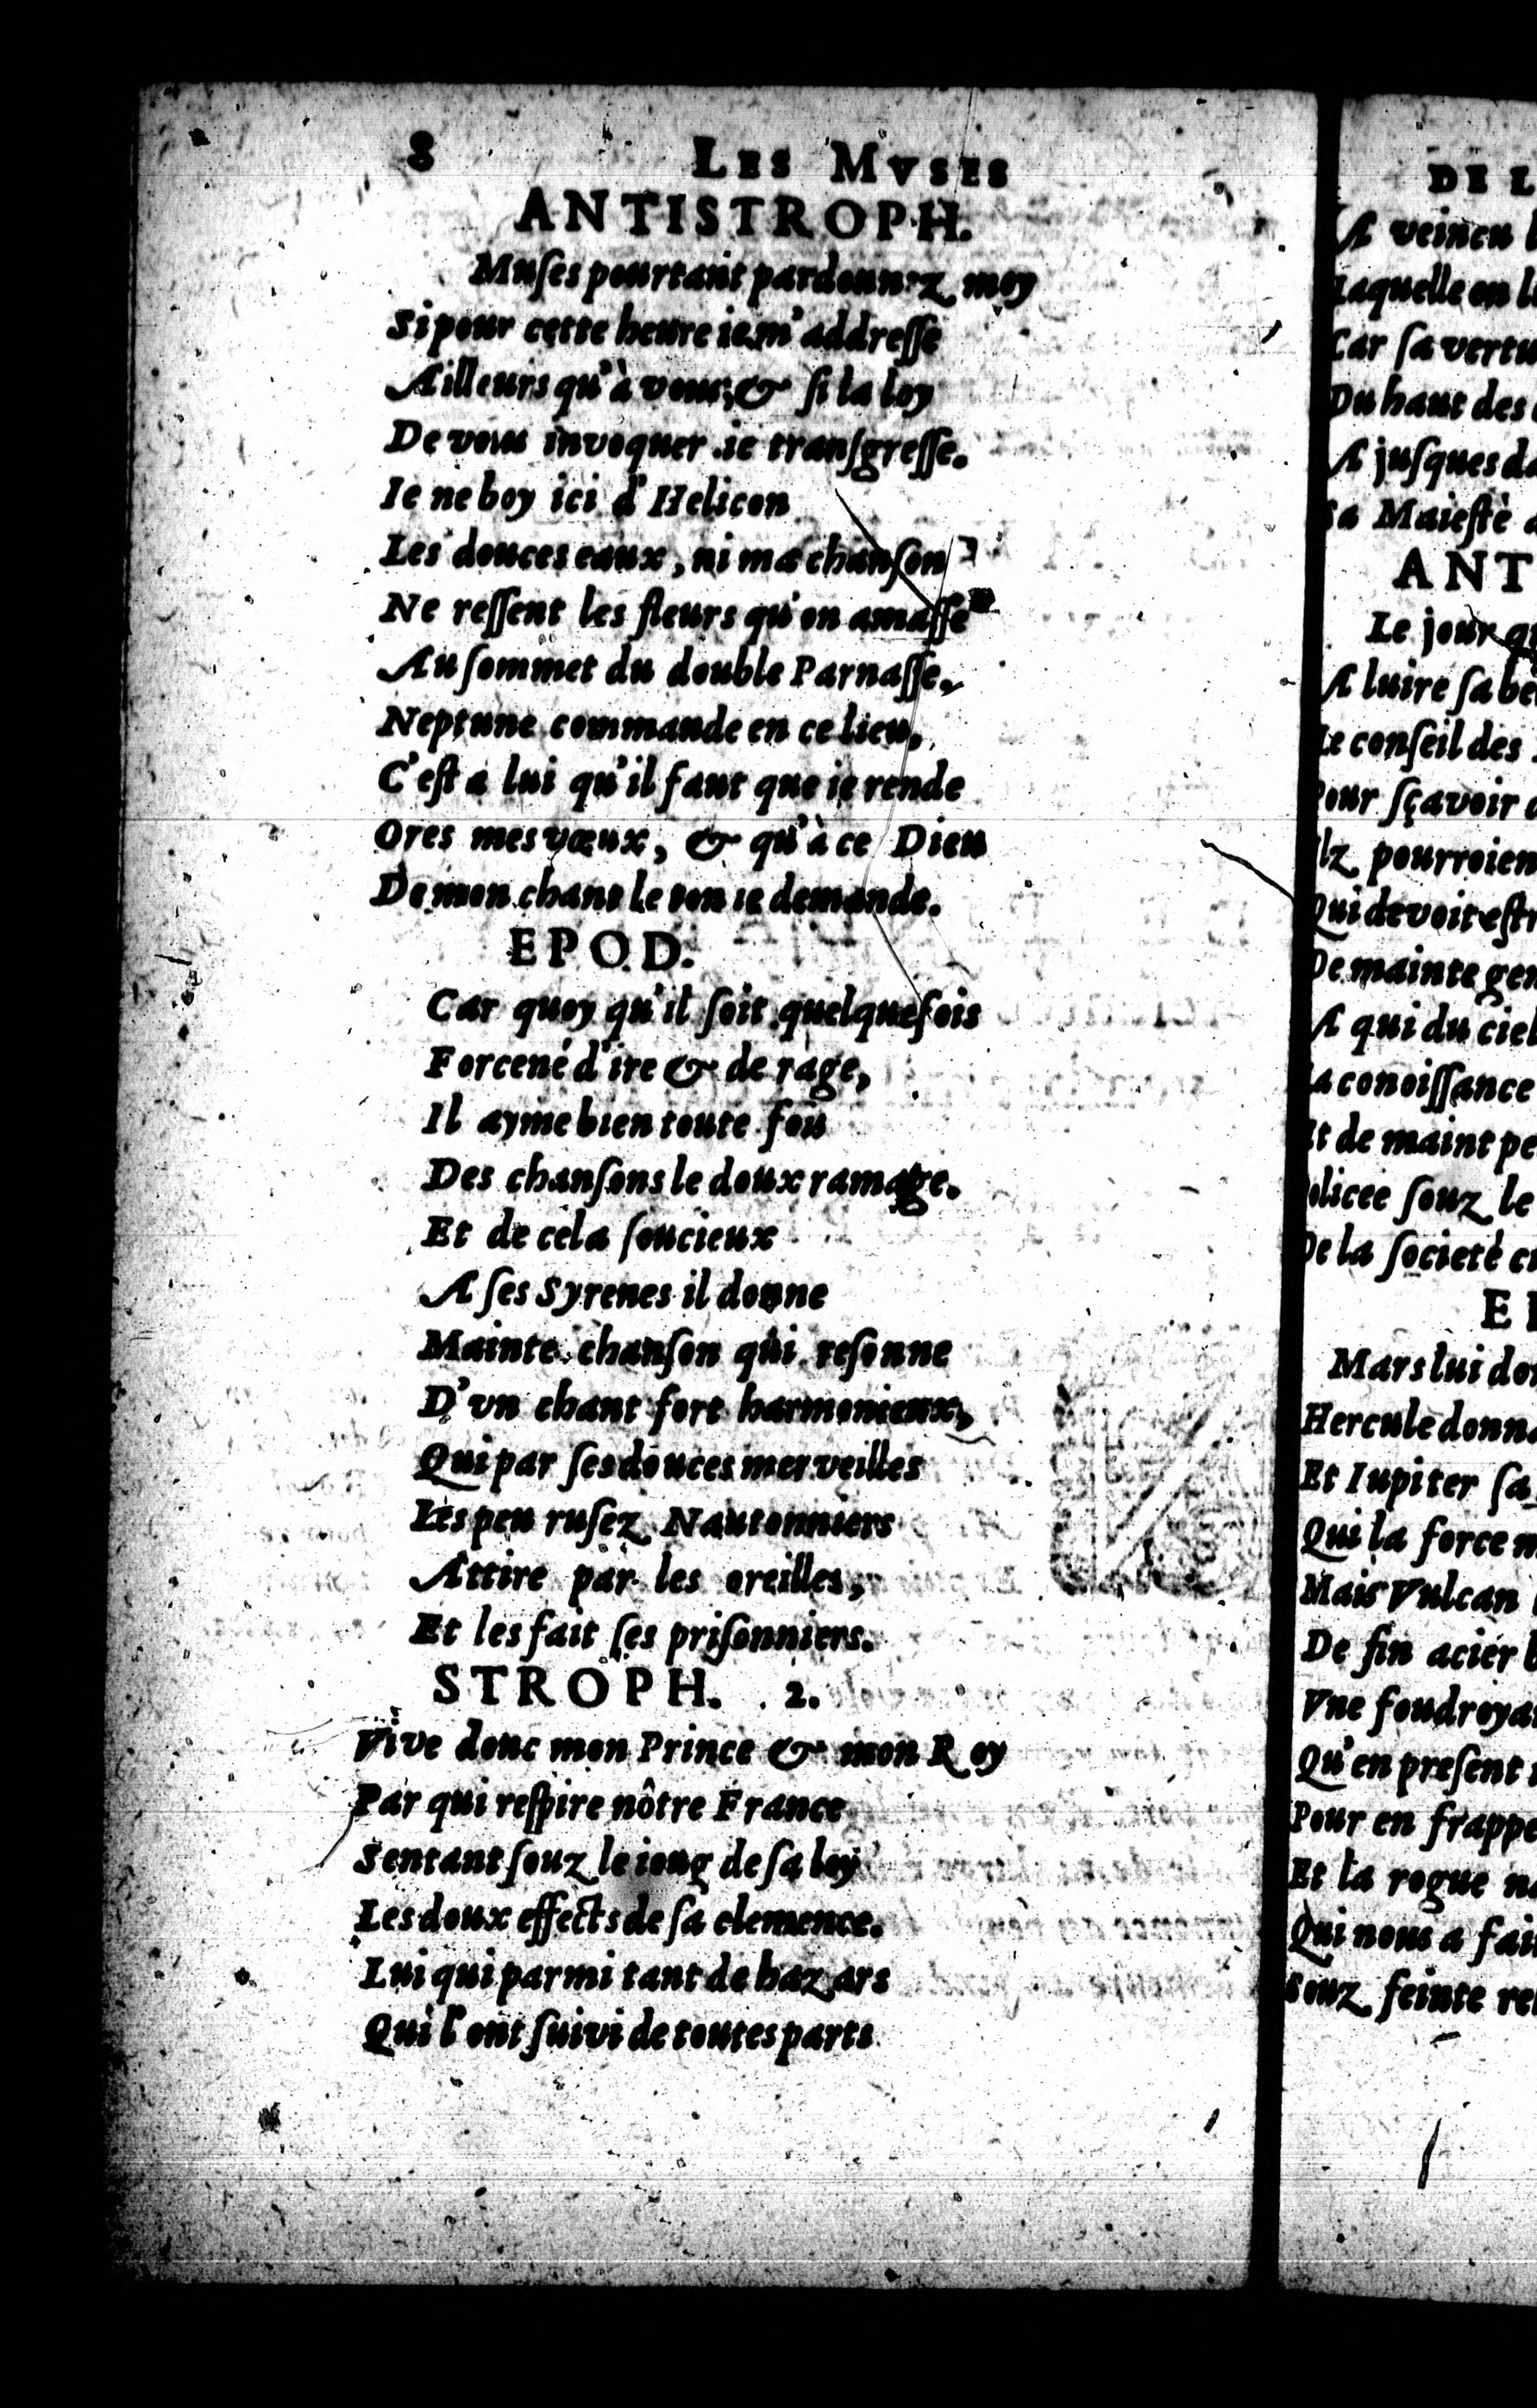 8 LES MVSES
ANTISTROPH.
Muſes pourtant pardonnez moy
Si pour cette heure ie m'addreſſe
Ailleurs qu'à vous, & ſi la loy
De vous invoquer ie tranſgreſſe.
Ie ne boy ici d'Helicon
Les douces eaux, ni ma chanſon
Ne reſſent les fleurs qu'on amaſſe
Au ſommet du double Parnaſſe.
Neptune commande en ce lieu,
C'eſt a lui qu'il faut que ie rende
Ores mes vœux, & qu'à ce Dieu
De mon chant le ton ie demande.
EPOD.
Car quoy qu'il ſoit quelquefois
Forcené d'ire & de rage,
Il ayme bien toute fois
Des chanſons le doux ramage.
Et de cela ſoucieux
A ſes Syrenes il donne
Mainte chanſon qui reſonne
D'vn chant fort harmonieux,
Qui par ſes douces merveilles
Les peu ruſez Nautonniers
Attire par les oreilles,
Et les fait ſes priſonniers.
STROPH. 2.
Vive donc mon Prince & mon Roy
Par qui reſpire nôtre France
Sentant ſouz le ioug de ſa loy
Les doux effects de ſa clemence.
Lui qui parmi tant de hazars
Qui l'ont ſuivi de toutes parts
DE L
A veincu
Laquelle on
Car ſa vertu
Du haut des
A juſques
Sa Maieſtè
ANT
Le jour
A luire ſa
Le conſeil des
Pour ſçavoir
Ilz pourroien
Qui devoit eſtr
De mainte gen
A qui du ciel
La conoiſſance
Et de maint pe
olicee ſouz le
De la ſocieté
E
Mars lui don
Hercule donna
Et Iupiter ſa
Qui la force
Mais Vulcan
De fin acier
Vne foudroya
Qu'en preſent
Pour en frappe
Et la rogue
Qui nous a fai
Souz feinte